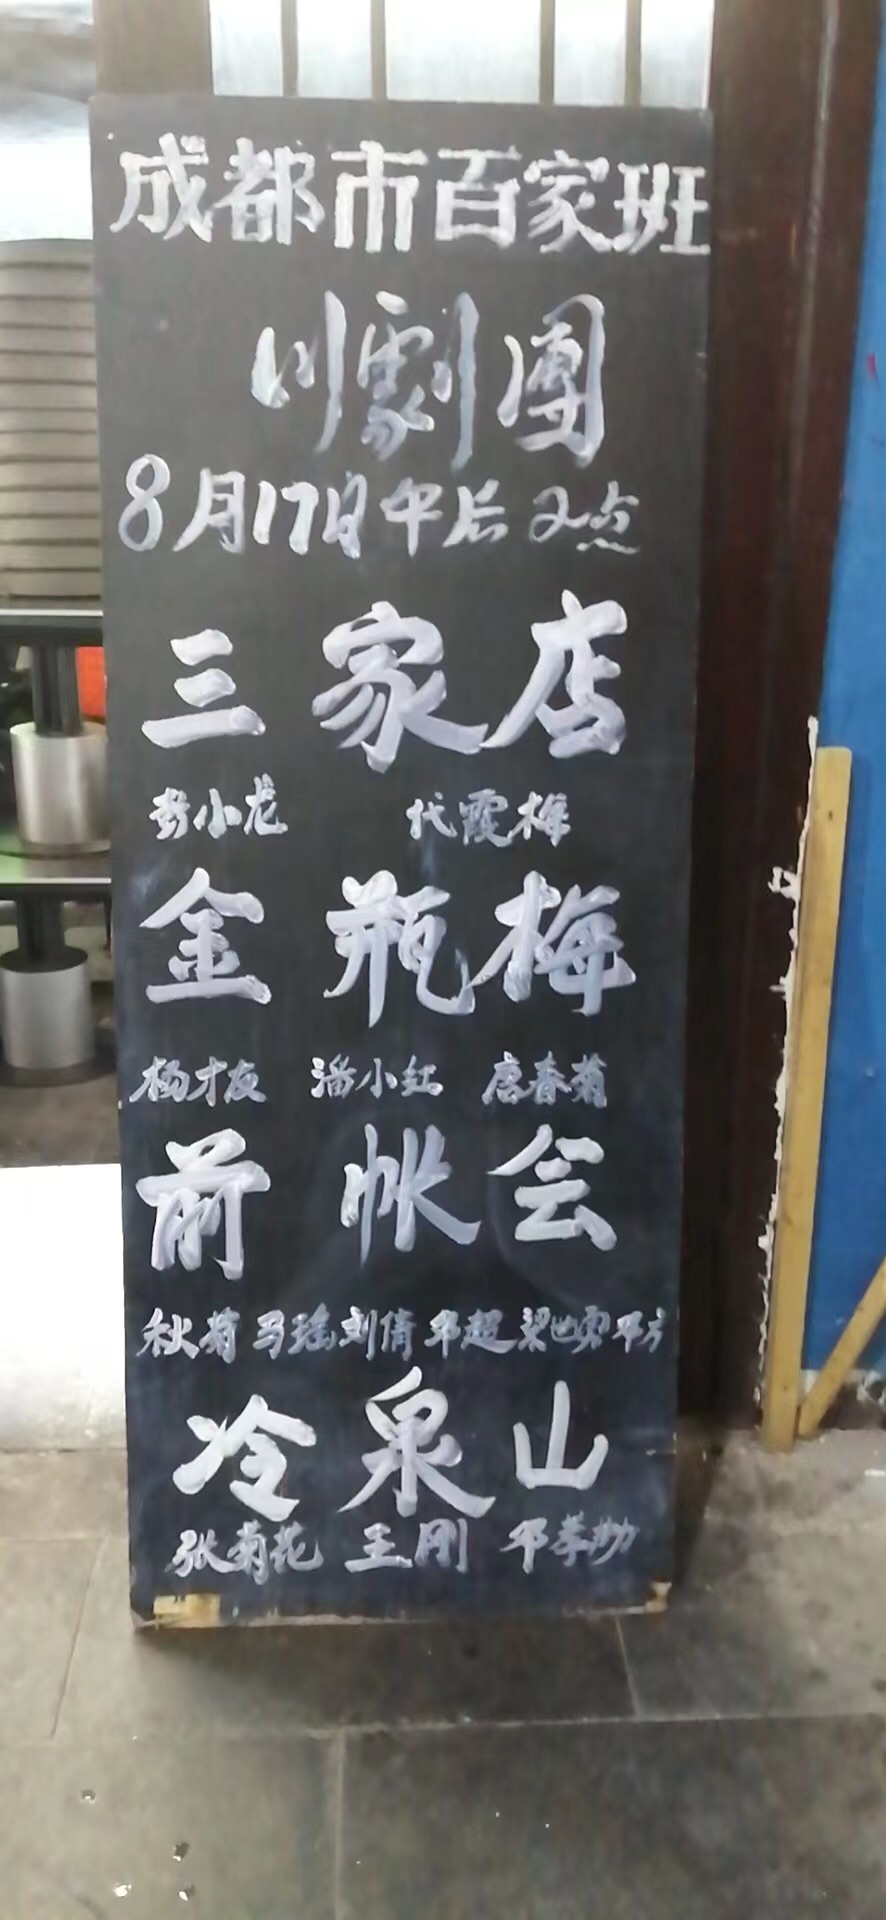 成都市百家班
川劇團
8月17日午后2点
三家店
彭小龙 代霞梅
金瓶梅
杨才友 潘小红 唐春菊
前帐会
秋菊 马瑶 刘倩 邓超 梁世宽 邓方
冷泉山
张菊花 王刚 邓孝勋